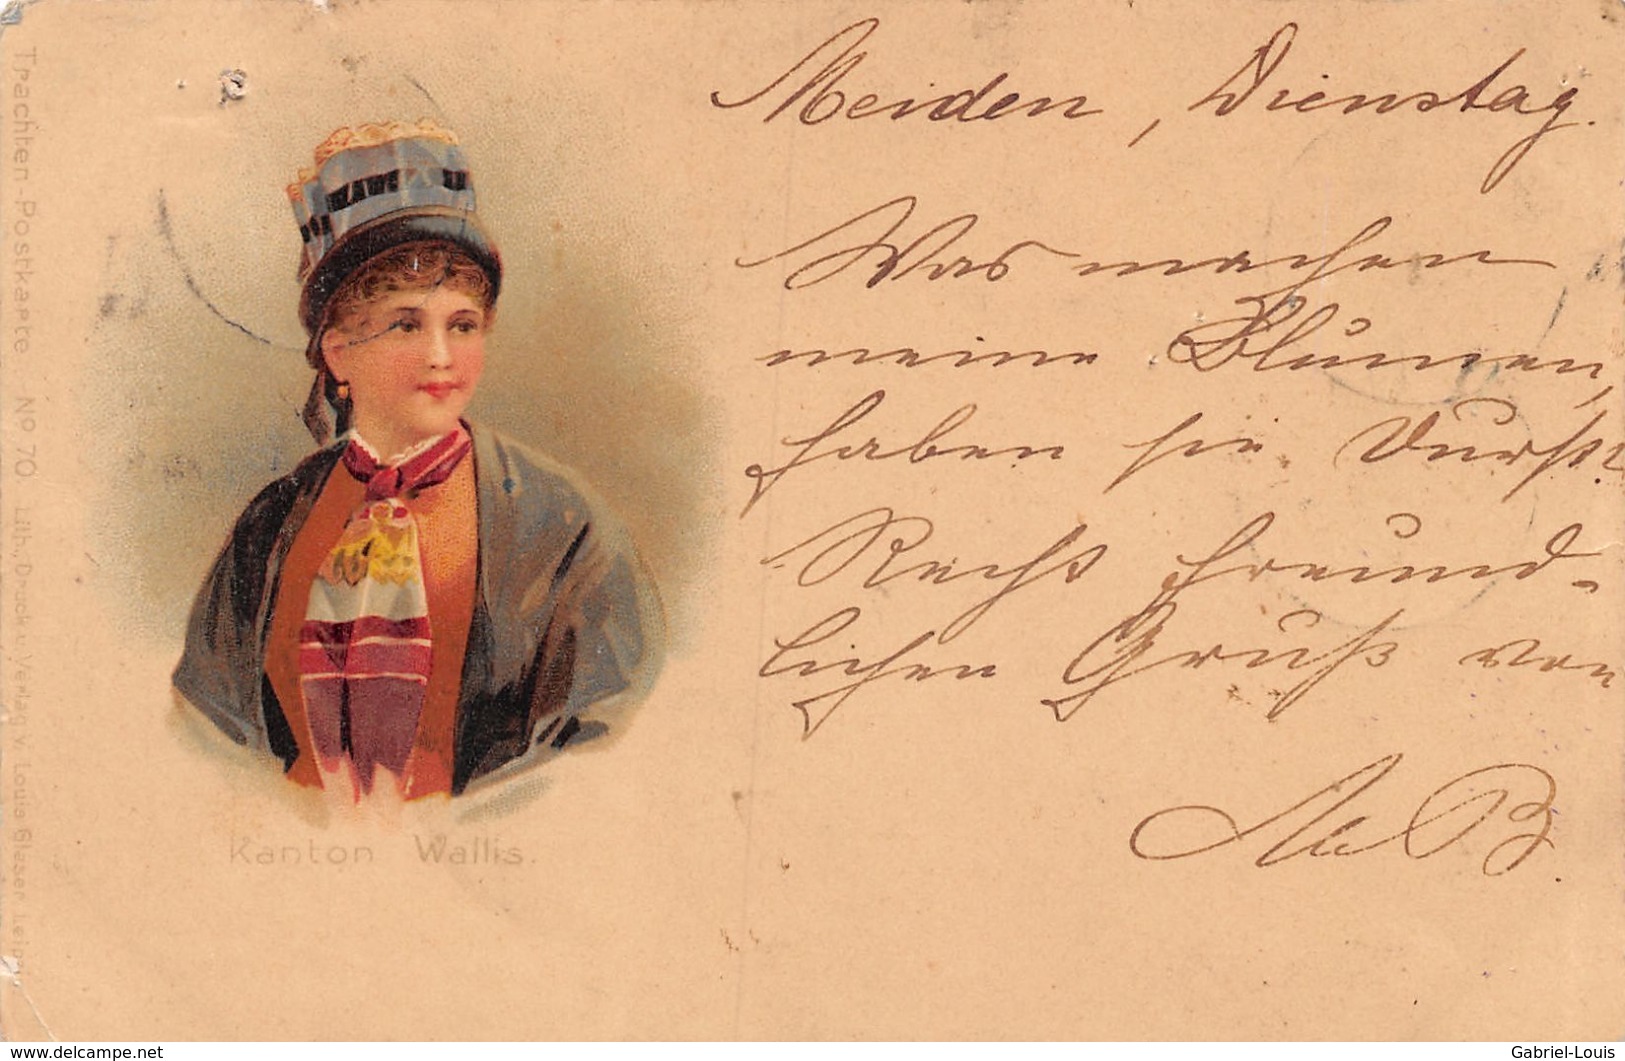 Trachten-Postkarte Nº 70 Lith. Druck u. Verlag v. Louis Glaser Leipzig
Kanton Wallis.
Meiden, Dienstag.
Was machen
meine Blumen,
haben sie Durst?
Recht freund-
lichen Gruß von
B.
www.delcampe.net
Gabriel-Louis